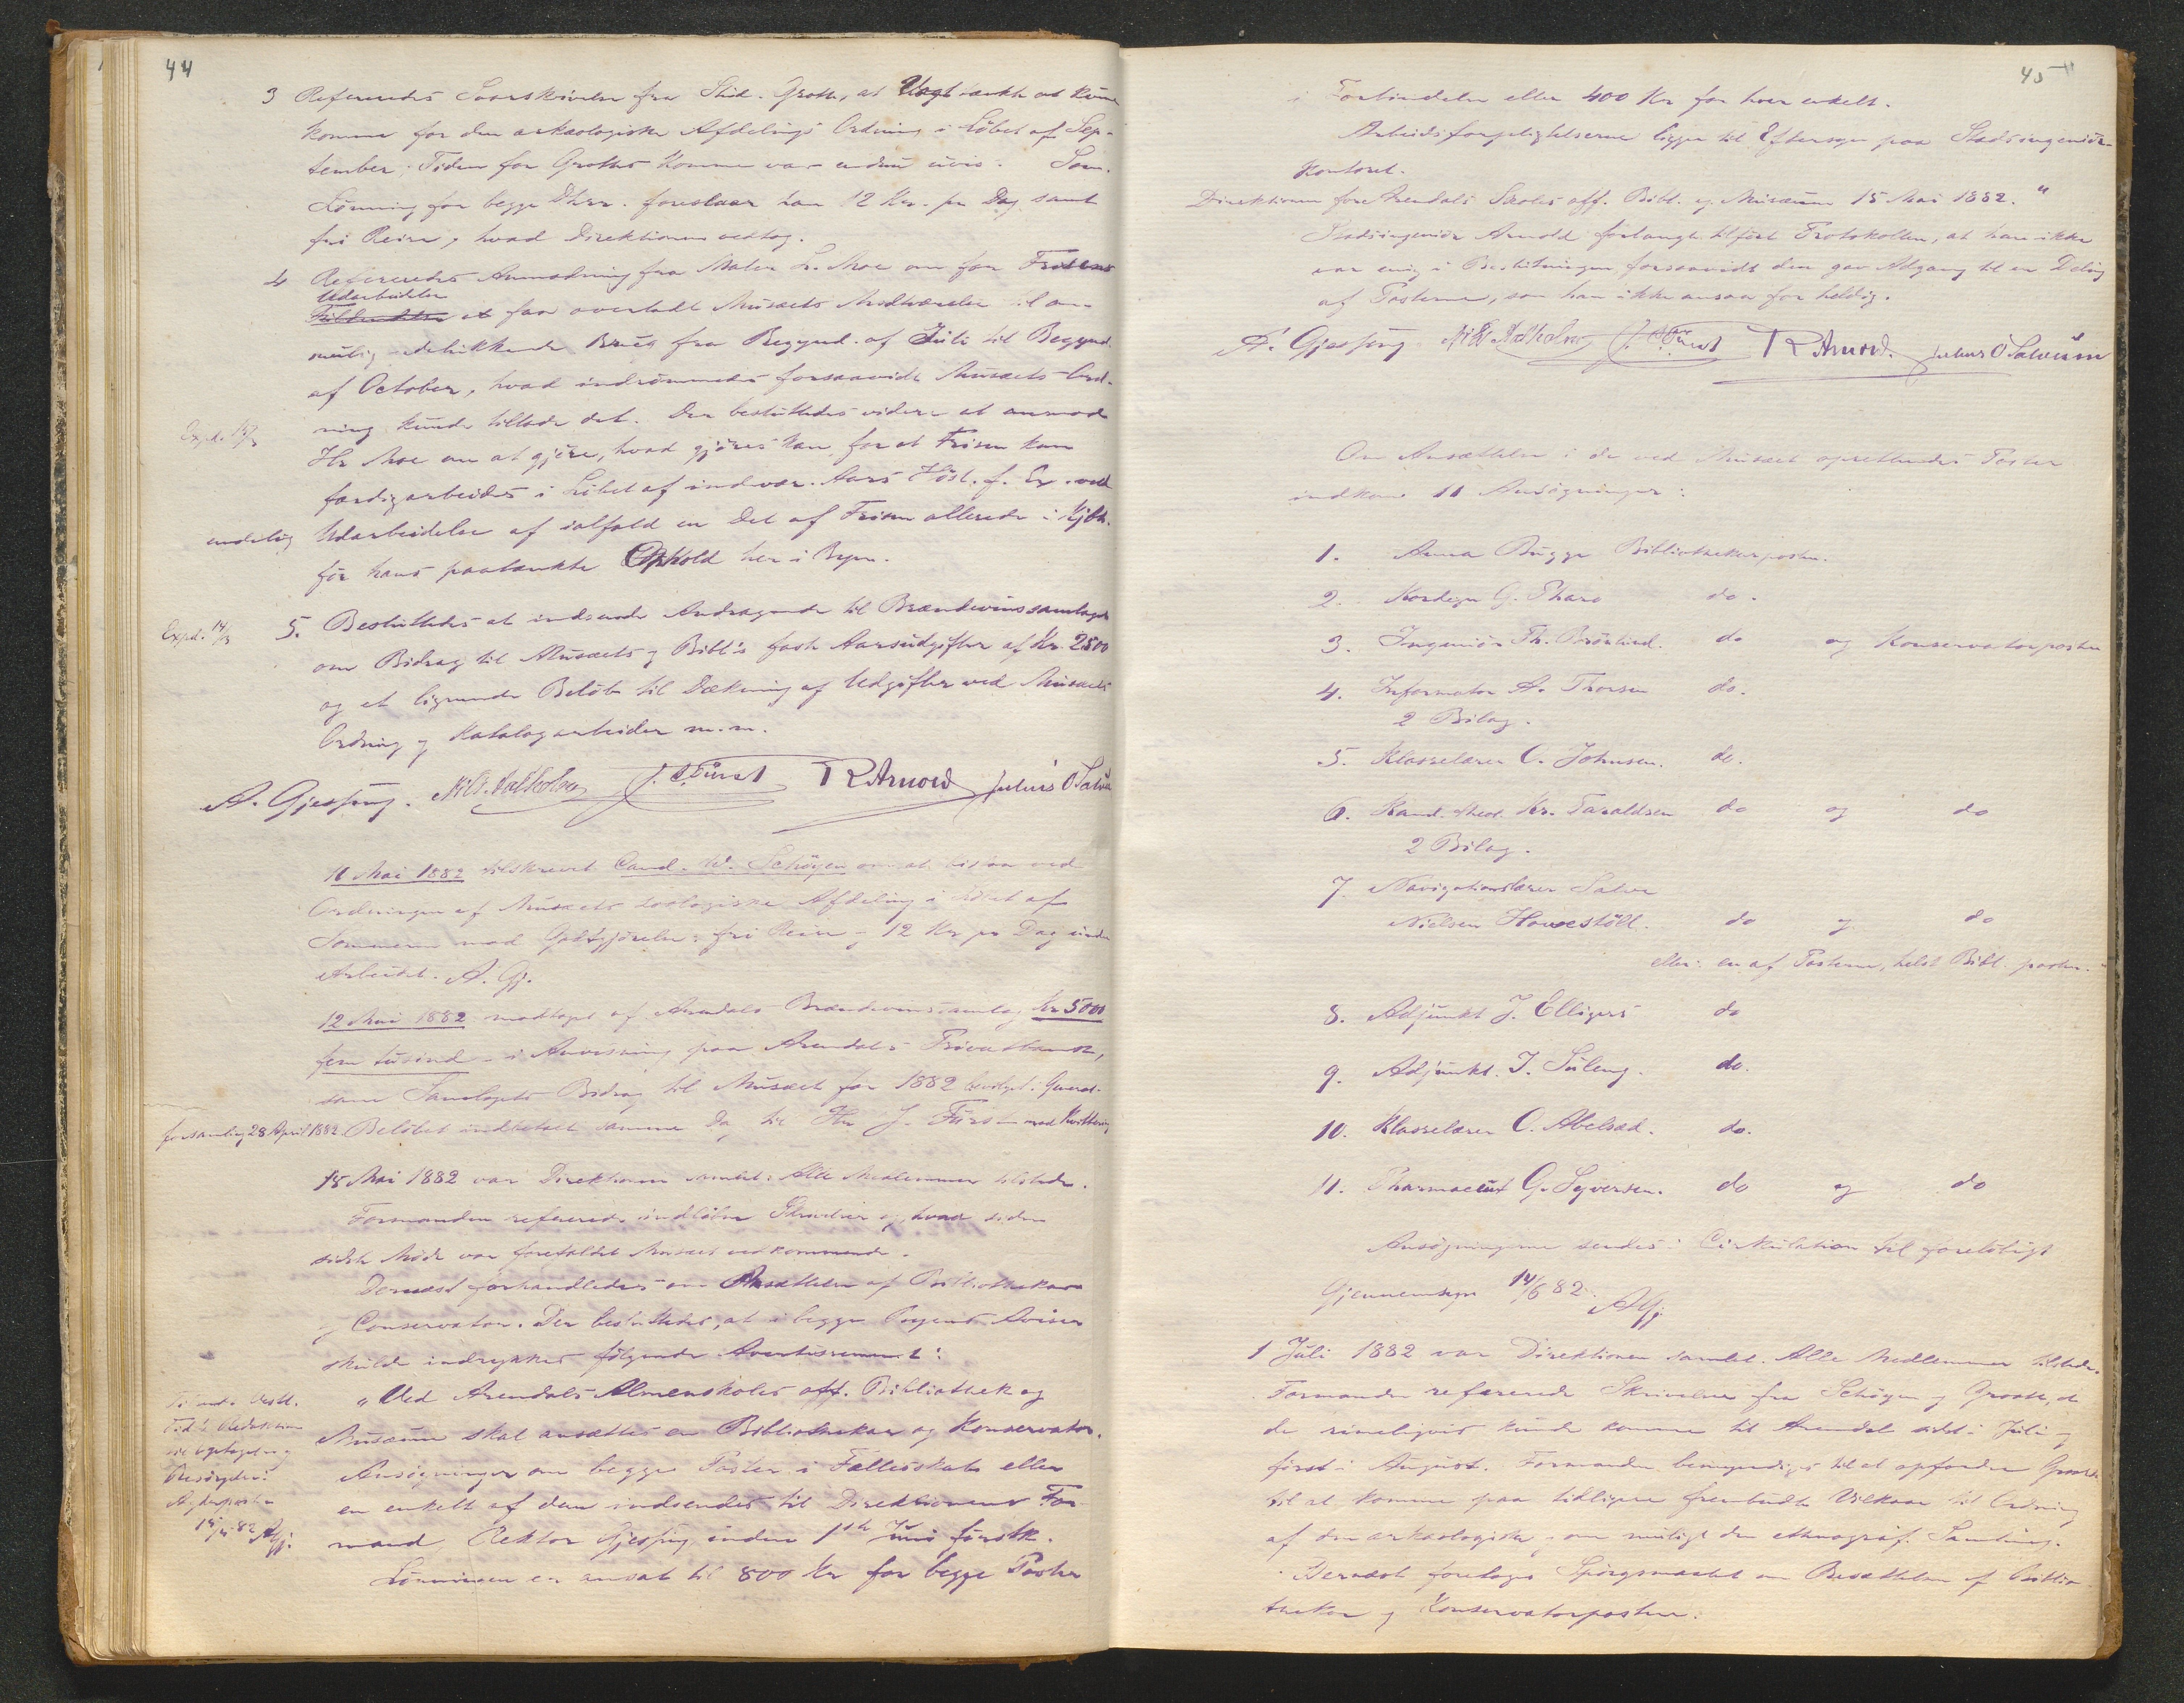 44
3 Refereredes Svarskrivelse fra Stud. Grotte, at Uagt tænkte at kunne
komme for den arkæologiske Afdelings Ordning i Løbet af Sep-
tember; Tiden for Grottes Komme var endnu uvis. Som
Lønning for begge Dhrr. foreslaar han 12 Kr. pr Dag samt
fri Reise, hvad Direktionen vedtog.
4 Refereredes Anmodning fra Maler L. Moe om for Frisens
Udarbeidelse
at faa overladt Musæets Mødeværelse til an-
af October, hvad indrømmedes forsaavidt Musæets Ord-
ning kunde tillade det. Der besluttedes videre at anmode
Expd. 14/3
Hr Moe om at gjøre, hvad gjøres kan, for at Frisen kan
færdigarbeides i Løbet af indevær. Aars Høst. f. Ex. ved
endelig Udarbeidelse af ialfald en Del af Frisen allerede i Kjbh.
før hans paatænkte Ophold her i Byen.
Expd. 14/3
5. Besluttedes at indsende Andragende til Brændevinssamlaget
om Bidrag til Musæets og Bibl's faste Aarsudgifter af Kr. 2500
og et lignende Beløb til Dækning af Udgifter ved Musæets
Ordning og Katalogarbeider m.m.
A. Gjessing. Nils Aalholm J. A. Fürst R Arnold Julius O Salvesen
11 Mai 1882 tilskrevet Cand. W. Schøyen om at bistaa ved
Ordningen af Musæets zoologiske Afdeling i Løbet af
Sommeren mod Godtgjørelse: fri Reise og 12 Kr pr Dag under
Arbeidet. A. Gj.
12 Mai 1882 modtaget af Arendals Brændevinssamlag Kr 5000
fem tusind i Anvisning paa Arendals Privatbank,
som Samlagets Bidrag til Musæet for 1882 bevilget i General-
forsamling 28 April 1882. Beløbet indbetalt samme Dag til Hr J. Fürst mod Kvittering
15 Mai 1882 var Direktionen samlet: Alle Medlemmer tilstede.
Formanden refererede indløbne Skrivelser og hvad siden
sidste Møde var forefaldet Musæet vedkommende.
Dernæst forhandledes om Ansættelse af Bibliothekar
og Conservator. Der besluttedes, at i begge Byens Aviser
skulde indrykkes følgende Avertissement:
"Ved Arendals Almenskoles off. Bibliothek og
Musæum skal ansættes en Bibliothekar og Konservator.
Ansøgninger om begge Poster i Fællesskab eller
en enkelt af dem indsendes til Direktionens For-
mand, Rektor Gjessing inden 1ste Juni førstk.
Lønningen er ansat til 800 Kr for begge Poster
45
i Forbindelse eller 400 Kr for hver enkelt.
Arbeidsforpligtelserne ligger til Eftersyn paa Stadsingeniør-
kontoret.
Direktionen for Arendals Skoles off. Bibl. og Musæum 15 Mai 1882."
Stadsingeniør Arnold forlangte tilført Protokollen, at han ikke
var enig i Beslutningen forsaavidt den gav Adgang til en Deling
af Posterne, som han ikke ansaa for heldig.
A. Gjessing Nils Aalholm J. A. Fürst R Arnold. Julius O Salvesen
Om Ansættelse i de ved Musæet oprettede Poster
indkom 11 Ansøgninger:
1. Anna Bugge Bibliothekarposten.
2. Kordegn G. Tharo do.
3. Ingeniør Th. Brørlund. do og Konservatorposten
4. Informator A. Thorsen do.
2 Bilag.
5. Klasselærer C. Johnsen. do.
6. Kand. theol. Kr. Taraldsen do og do
2 Bilag.
7. Navigationslærer Salve
Nielsen Hovestøll. do og do
eller en af Posterne, helst Bibl. posten.
8. Adjunkt J. Elligers do
9. Adjunkt. I. Suleng. do.
10. Klasselærer O. Abelsæd. do.
11. Pharmaceut G. Syversen. do og do
Ansøgningerne sendes i Cirkulation til foreløbigt
Gjennemsyn 14/6 82. AGj.
1 Juli 1882 var Direktionen samlet. Alle Medlemmer tilstede.
Formanden refererede Skrivelser fra Schøyen og Grotte, at
de rimeligvis kunde komme til Arendal sidst i Juli og
først i August. Formanden bemyndiges til at opfordre Grotte
til at komme paa tidligere frembudte Vilkaar til Ordning
af den arkæologiske og om muligt den ethnograf. Samling.
Dernæst foretoges Spørgsmaalet om Besættelsen af Biblio-
thekar og Konservatorposten.